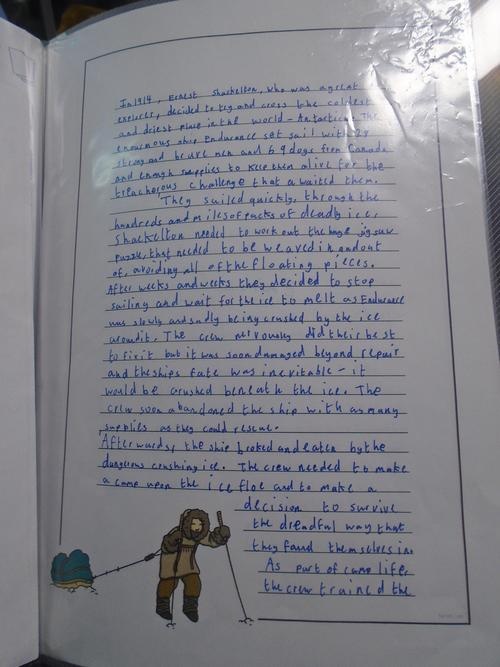 In 1914, Ernest Shackelton, who was a great
explorer, decided to try and cross the coldest
and driest place in the world - Antarctica. The
enourmous ship Endurance set sail with 29
strong and brave men and 69 dogs from Canada
and enough supplies to keep them alive for the
treacherous challenge that awaited them.
They sailed quickly, through the
hundreds and miles of packs of deadly ice.
Shackelton needed to work out the huge jigsaw
puzzle, that needed to be weaved in and out
of, avoiding all of the floating pieces.
After weeks and weeks they decided to stop
sailing and wait for the ice to melt as Endurance
was slowly and sadly being crushed by the ice
around it. The crew nervously did their best
to fix it but it was soon damaged beyond repair
and the ships fate was inevitable - it
would be crushed beneath the ice. The
crew soon abandoned the ship with as many
supplies as they could rescue.
Afterwards, the ship broked and eaten by the
dangerous crushing ice. The crew needed to make
a camp upon the ice floe and to make a
decision to survive
the dreadful way that
they found themselves in.
As part of camp life,
the crew trained the